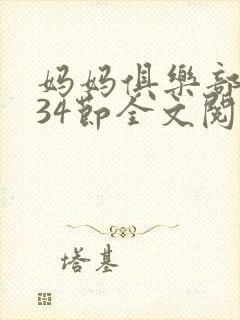 妈妈俱樂部
34節全文閱
塔基